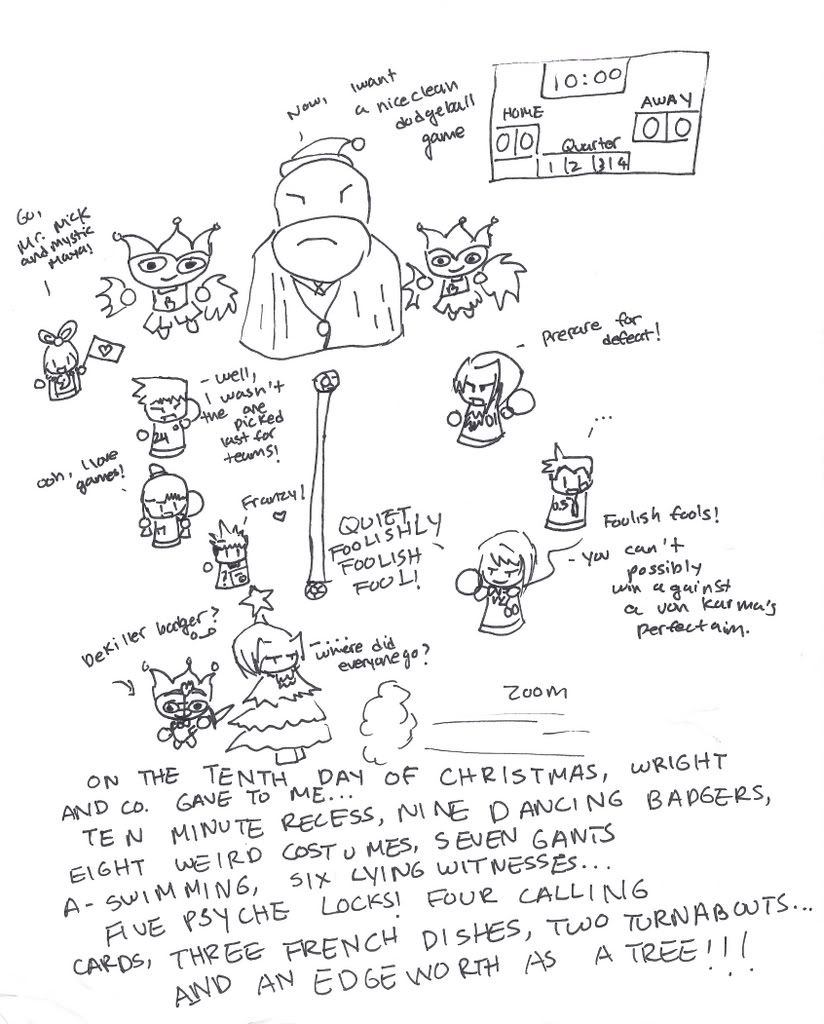 Now, I want
a nice clean
dodgeball
game
10:00
HOME
AWAY
00
00
Quarter
1 2 3 4
Go,
Mr. Nick
and mystic
Maya!
B
B
- Prepare for
defeat!
- well,
I wasn't
the one
picked
last for
teams!
24
01
...
ooh, I love
games!
1
0.5
Franzy!
?
QUIET
FOOLISHLY
FOOLISH
FOOL!
Foolish fools!
- You can't
possibly
win against
a von karma's
perfect aim.
00
DeKiller badger?
....
where did
everyone go?
ZOOM
ON THE TENTH DAY OF CHRISTMAS, WRIGHT
AND CO. GAVE TO ME...
TEN MINUTE RECESS, NINE DANCING BADGERS,
EIGHT WEIRD COSTUMES, SEVEN GANTS
A-SWIMMING, SIX LYING WITNESSES...
FIVE PSYCHE LOCKS! FOUR CALLING
CARDS, THREE FRENCH DISHES, TWO TURNABOUTS...
AND AN EDGEWORTH AS A TREE!!!